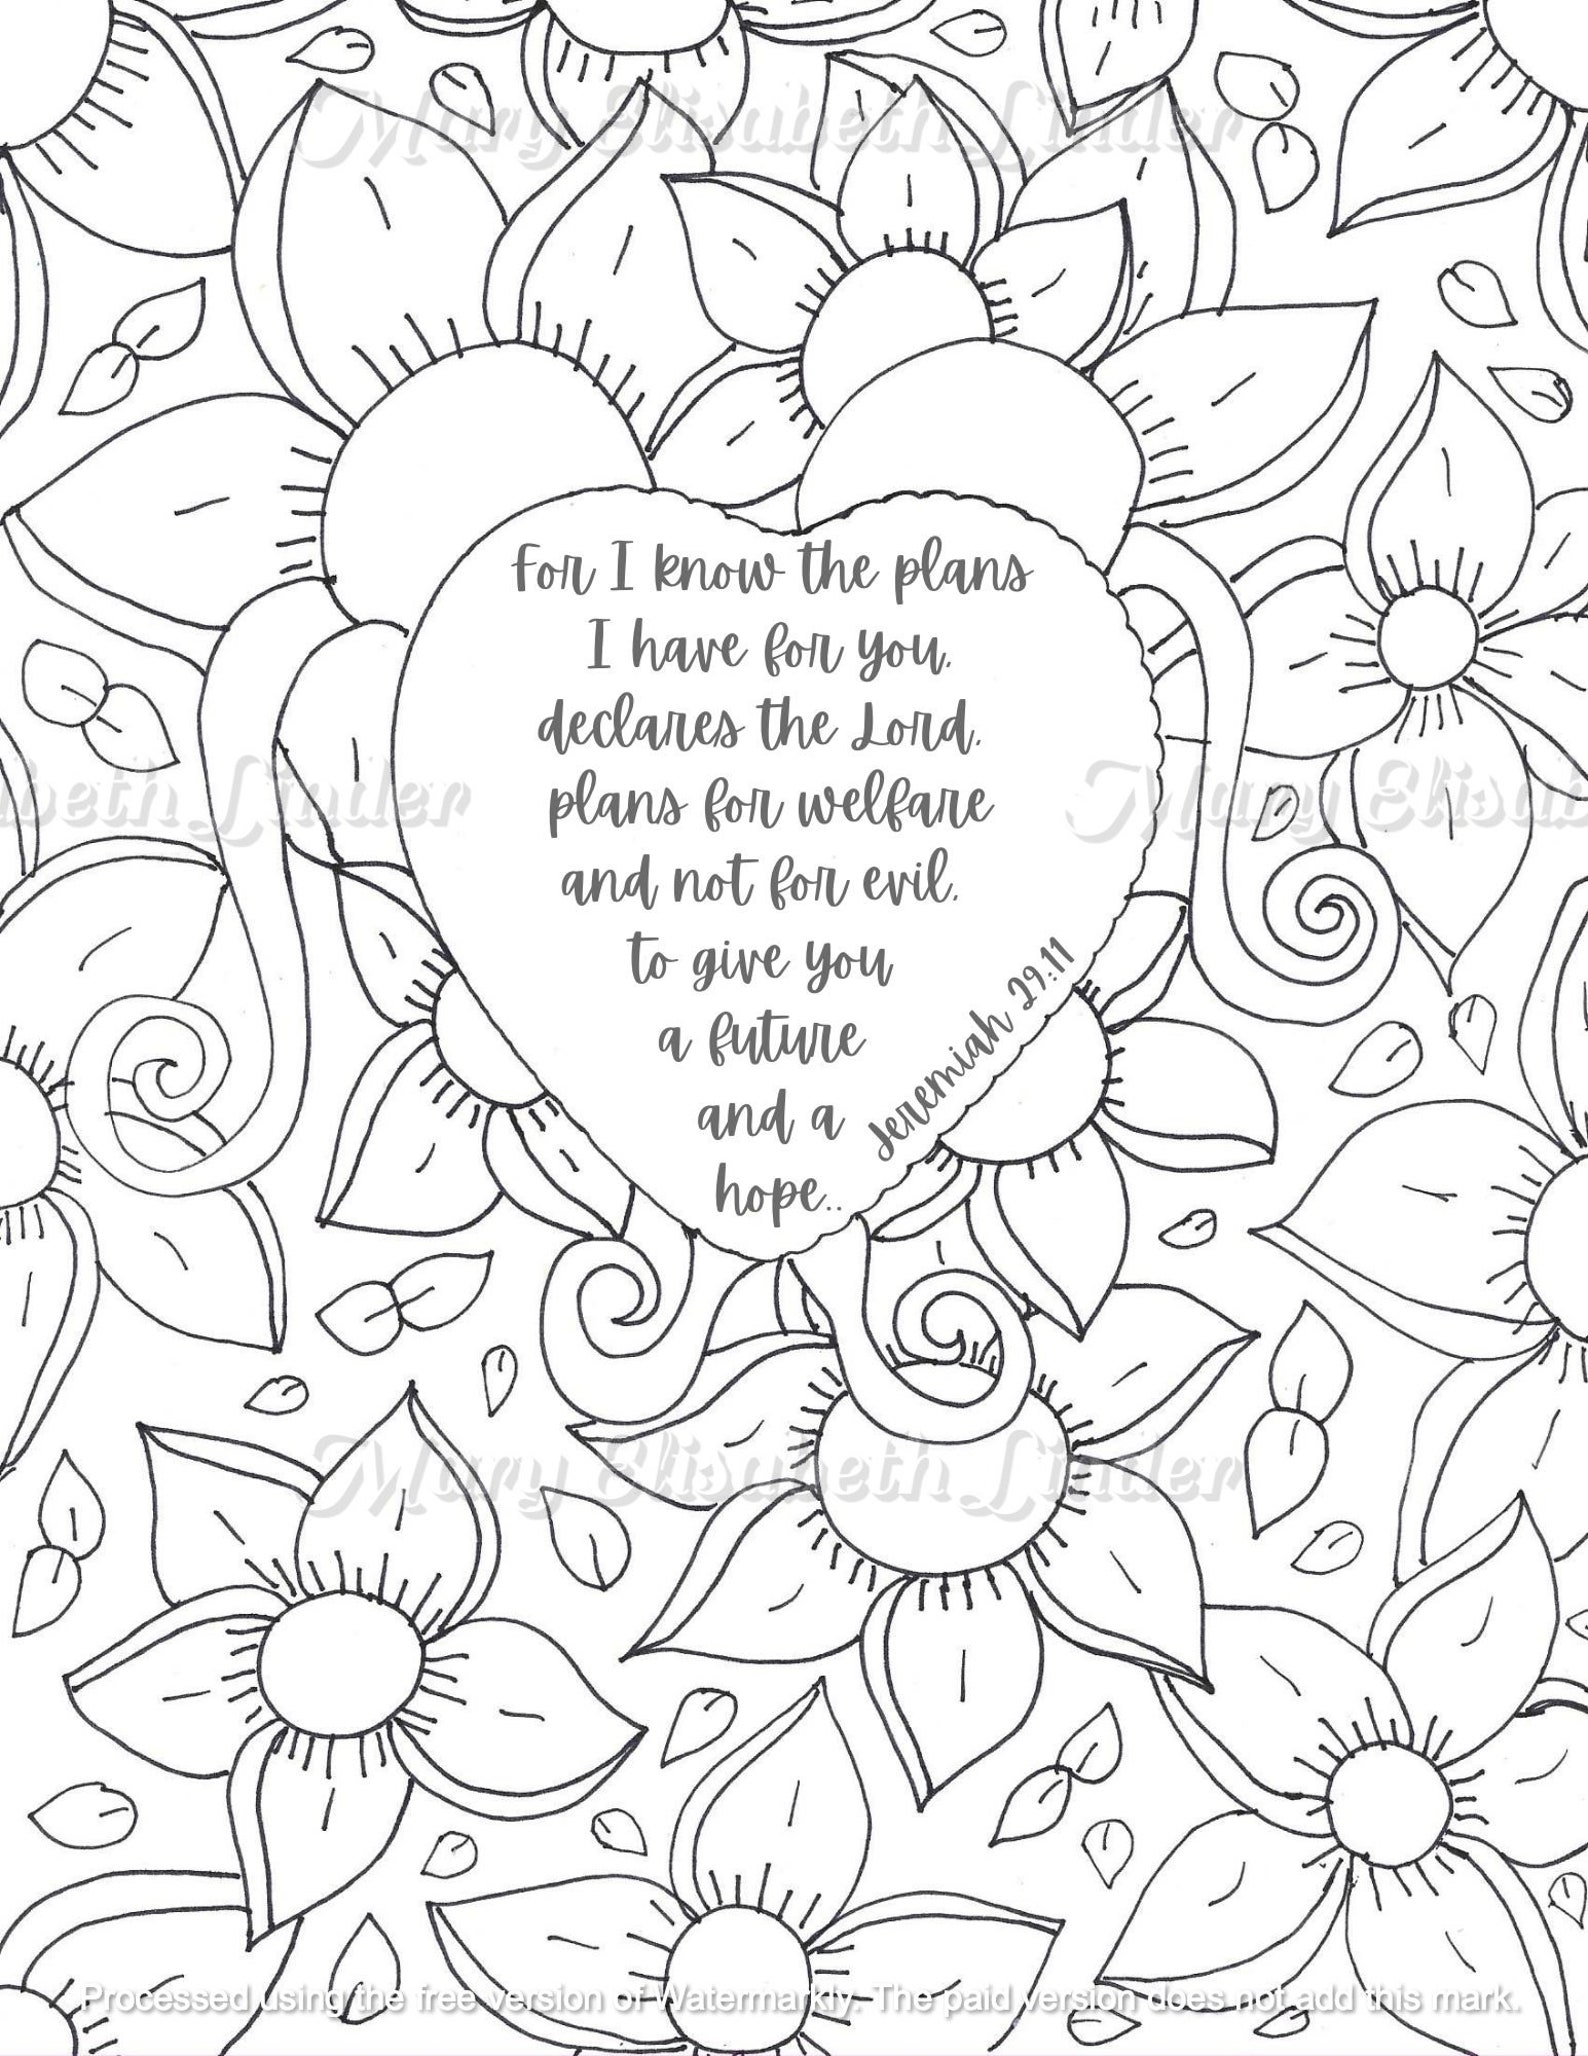 Mary Elisabeth Linder
For I know the plans
I have for you,
declares the Lord,
plans for welfare
and not for evil,
to give you
a future
and a
hope..
Jeremiah 29:11
isabeth Linder
Mary Elisab
Mary Elisabeth Linder
Processed using the free version of Watermarkly. The paid version does not add this mark.